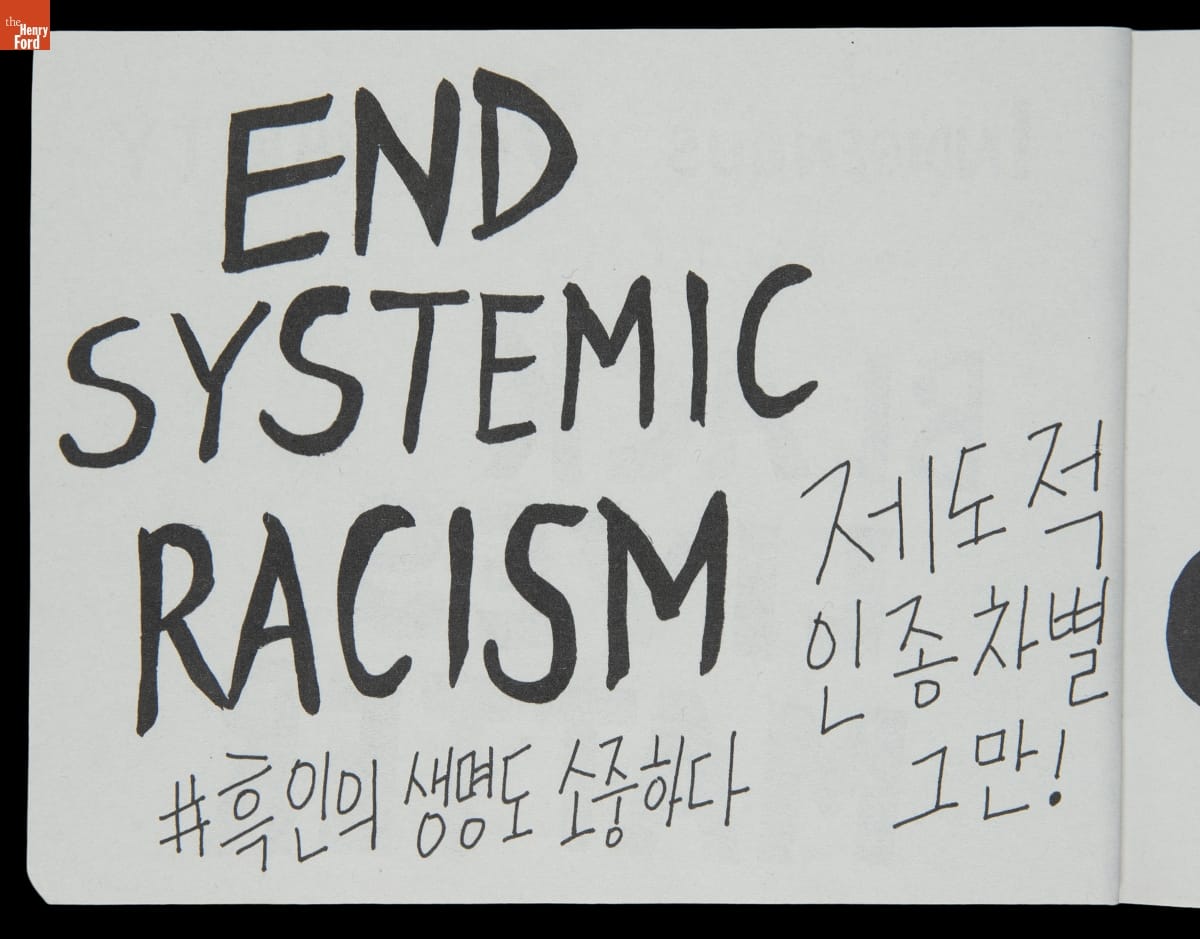 the
Henry
Ford
END
SYSTEMIC
RACISM
제도적
인종차별
그만!
#흑인의 생명도 소중하다